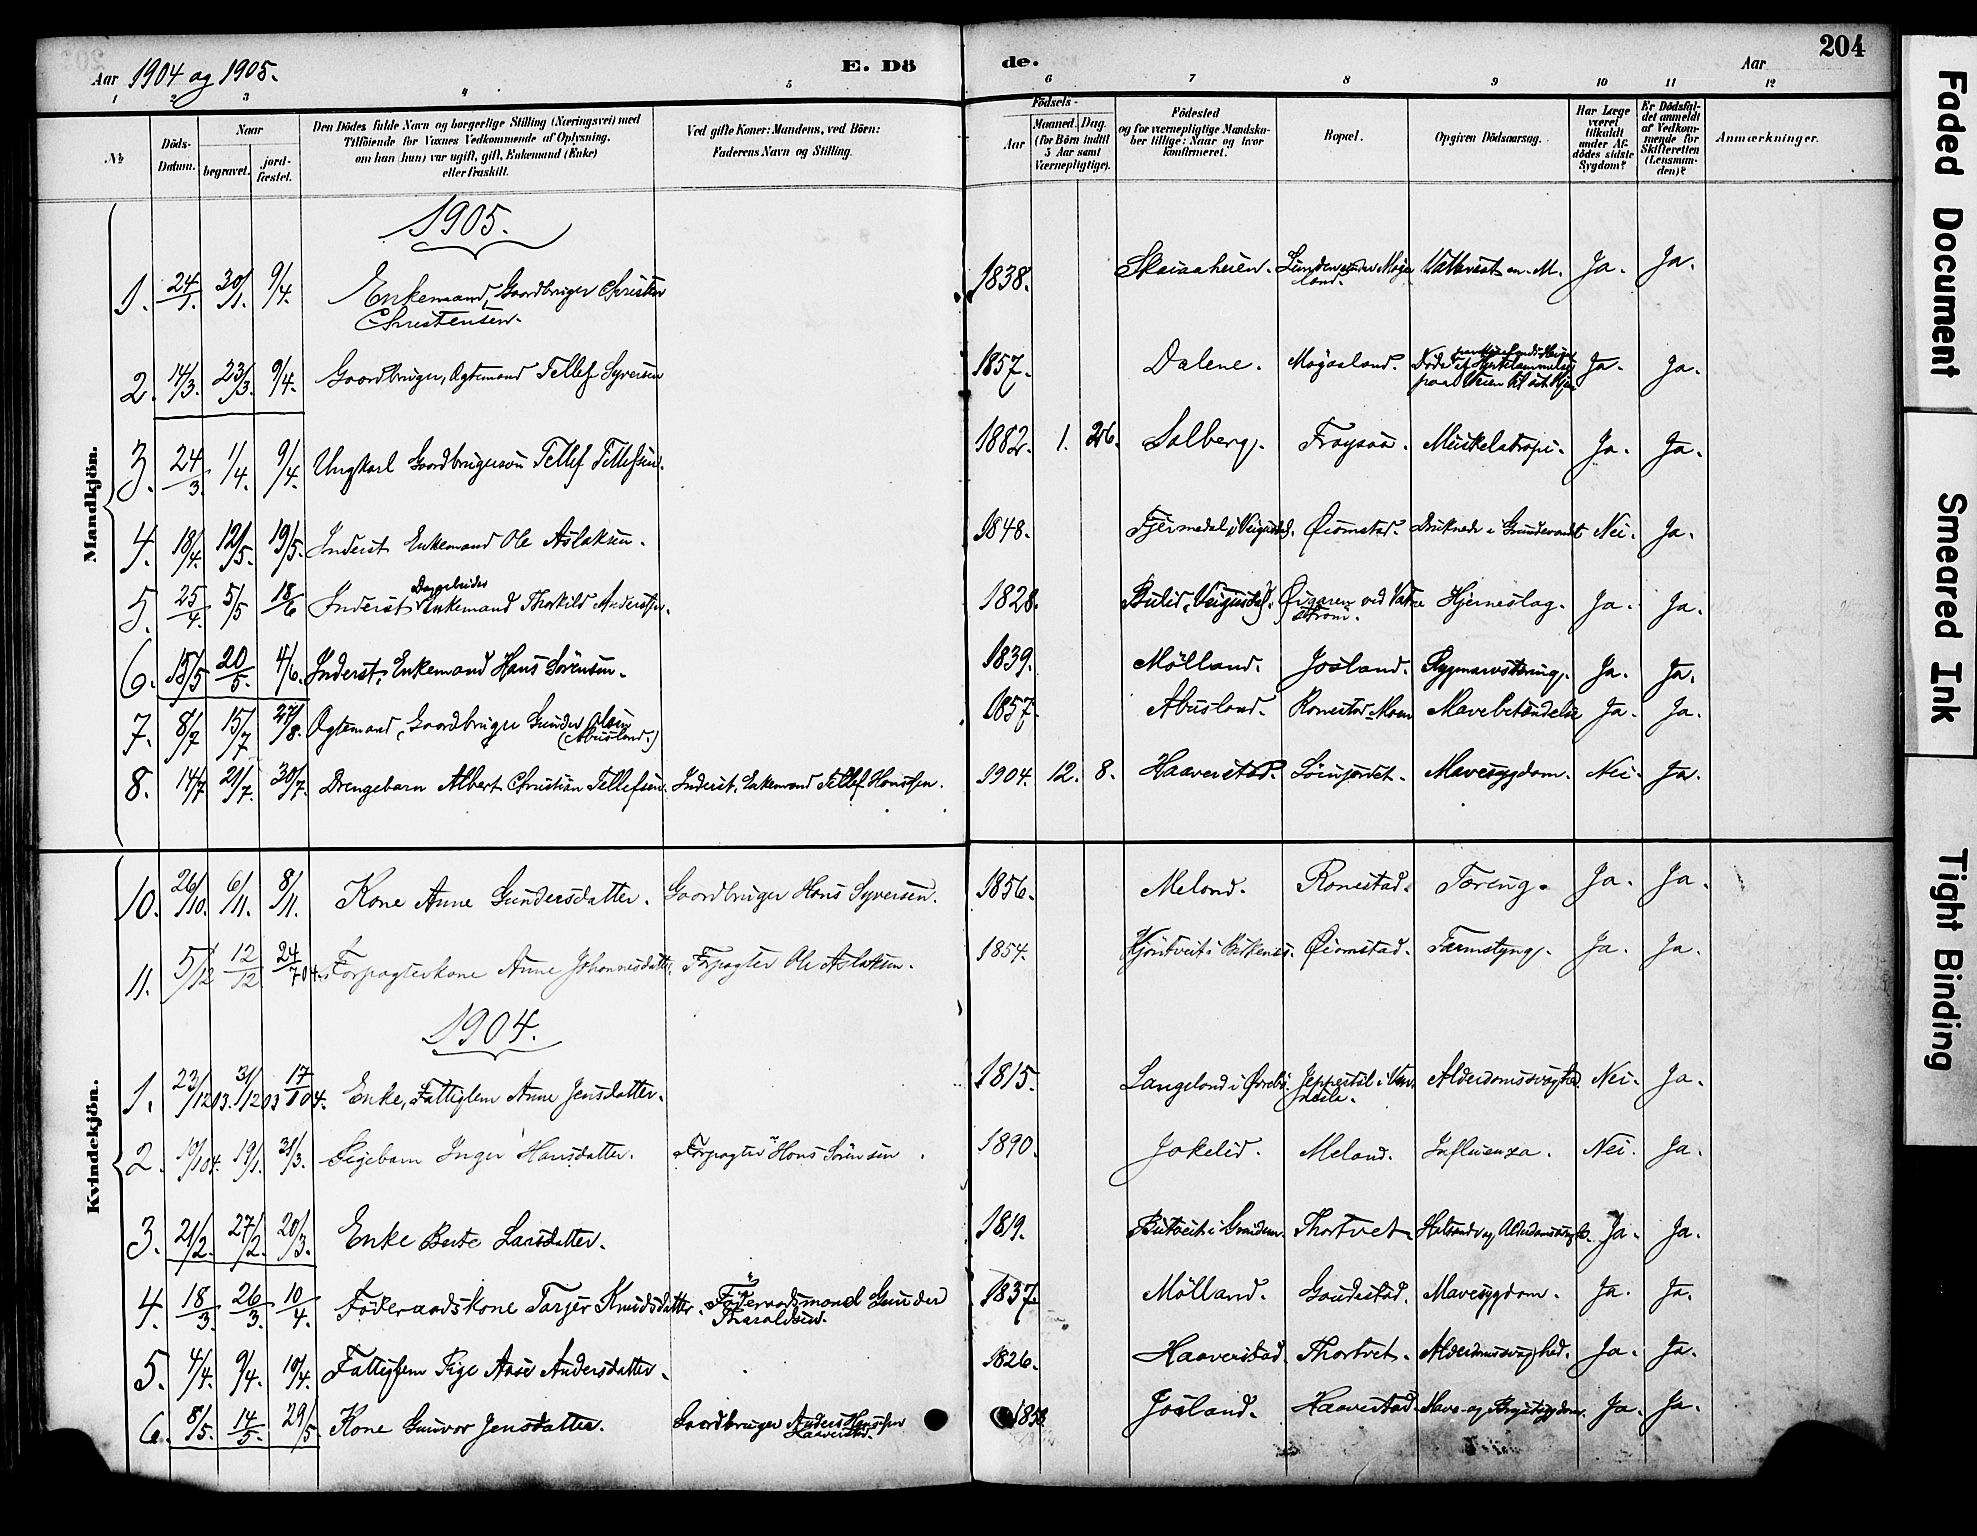 204
Aar 1904 og 1905.
E. Dö
de.
Aar
1 2 3 4 5 6 7 8 9 10 11 12
№
Döds-Datum.
Naar
begravet.
jord-fæstet.
Den Dödes fulde Navn og borgerlige Stilling (Næringsvei) med
Tilföiende for Voxnes Vedkommende af Oplysning,
om han (hun) var ugift, gift, Enkemand (Enke)
eller fraskilt.
Ved gifte Koner: Mandens, ved Börn:
Faderens Navn og Stilling.
Födsels-
Aar
Maaned. Dag.
(for Börn indtil
5 Aar samt
Værnepligtige).
Födested
og for værnepligtige Mandskaber tillige: Naar og hvor
konfirmeret.
Bopæl.
Opgiven Dödsaarsag.
Har Læge
været
tilkaldt
under Afdödes sidste
Sygdom?
Er Dödsfaldet anmeldt
af Vedkommende for
Skifteretten
(Lensmanden)?
Anmærkninger.
Mandkjön.
1905.
1. 24/1. 30/1. 9/4. Enkemand, Gaardbruger Christen Christensen. 1838. Ja. Ja.
2. 14/3. 23/3. 9/4. Gaardbruger, Ægtemand Tellef Syversen 1857. Dalene. Ja. Ja.
3. 24/3. 1/4. 9/4. Ungkarl Gaardbrugersøn Tellef Tellefsen. 1882. 1. 26. Solberg. Frøysaa. Muskelatropi. Ja. Ja.
4. 18/4. 12/5. 19/5. Inderst Enkemand Ole Aslaksen. 1848. Øiomstad. Druknede i Nei. Ja.
5. 25/4. 5/5 18/6 Inderst Enkemand Thorkild Anderssen. 1828. Hjerneslag. Ja. Ja.
6. 15/5 20/5. 4/6. Inderst, Enkemand Hans Sørensen. 1839. Mølland. Josland. Rygmarvstæring. Ja. Ja.
7. 8/7 15/7 27/8. Ægtemand, Gaardbruger Gunder Olsen (Abusland.) 1857. Abusland. Ronestad Moen Mavebetændelse Ja. Ja.
8. 14/7 21/7. 30/7. Drengebarn Albert Christian Tellefsen. Inderst, Enkemand Tellef Hanssen. 1904. 12. 8. Haaverstad. Mavesygdom. Nei. Ja.
Kvindekjön.
10. 26/10. 6/11. 8/11. Kone Anne Gundersdatter. Gaardbruger Hans Syversen. 1856. Meland. Ronestad. Tæring. Ja. Ja.
11. 5/12 12/12 24/7 04. Forpagterkone Anne Johannesdatter. Forpagter Ole Aslaksen. 1854. Øiomstad. Tarmslyng. Ja. Ja.
1904.
1. 23/12 03. 31/12 03 17/1 04. Enke, Fattiglem Anne Jensdatter. 1815. Langeland i Øvrebø. Alderdomssvaghed Nei. Ja.
2. 10/1 04. 19/1. 31/3. Pigebarn Inger Hansdatter. Forpagter Hans Sørensen. 1890. Jokelid. Meland. Influenza. Nei. Ja.
3. 21/2. 27/2. 20/3. Enke Berte Larsdatter. 1819. Thortvet. Ja. Ja.
4. 18/3. 26/3. 10/4. Føderaadskone Tarjer Knudsdatter. Føderaadsmand Gunder Tharaldsen. 1837. Mølland. Gaudestad. Mavesygdom. Ja. Ja.
5. 4/4. 9/4. 10/4. Fattiglem Pige Aase Andersdatter. 1826. Haaverstad. Thortvet. Alderdomssvaghed. Ja. Ja.
6. 8/5. 14/5. 29/5. Kone Gunvor Jensdatter. Gaardbruger Anders Hanssen Haaverstad. 1858. Josland. Haaverstad. Mave- og Brystsygdom. Ja. Ja.
Faded Document
Smeared Ink
Tight Binding